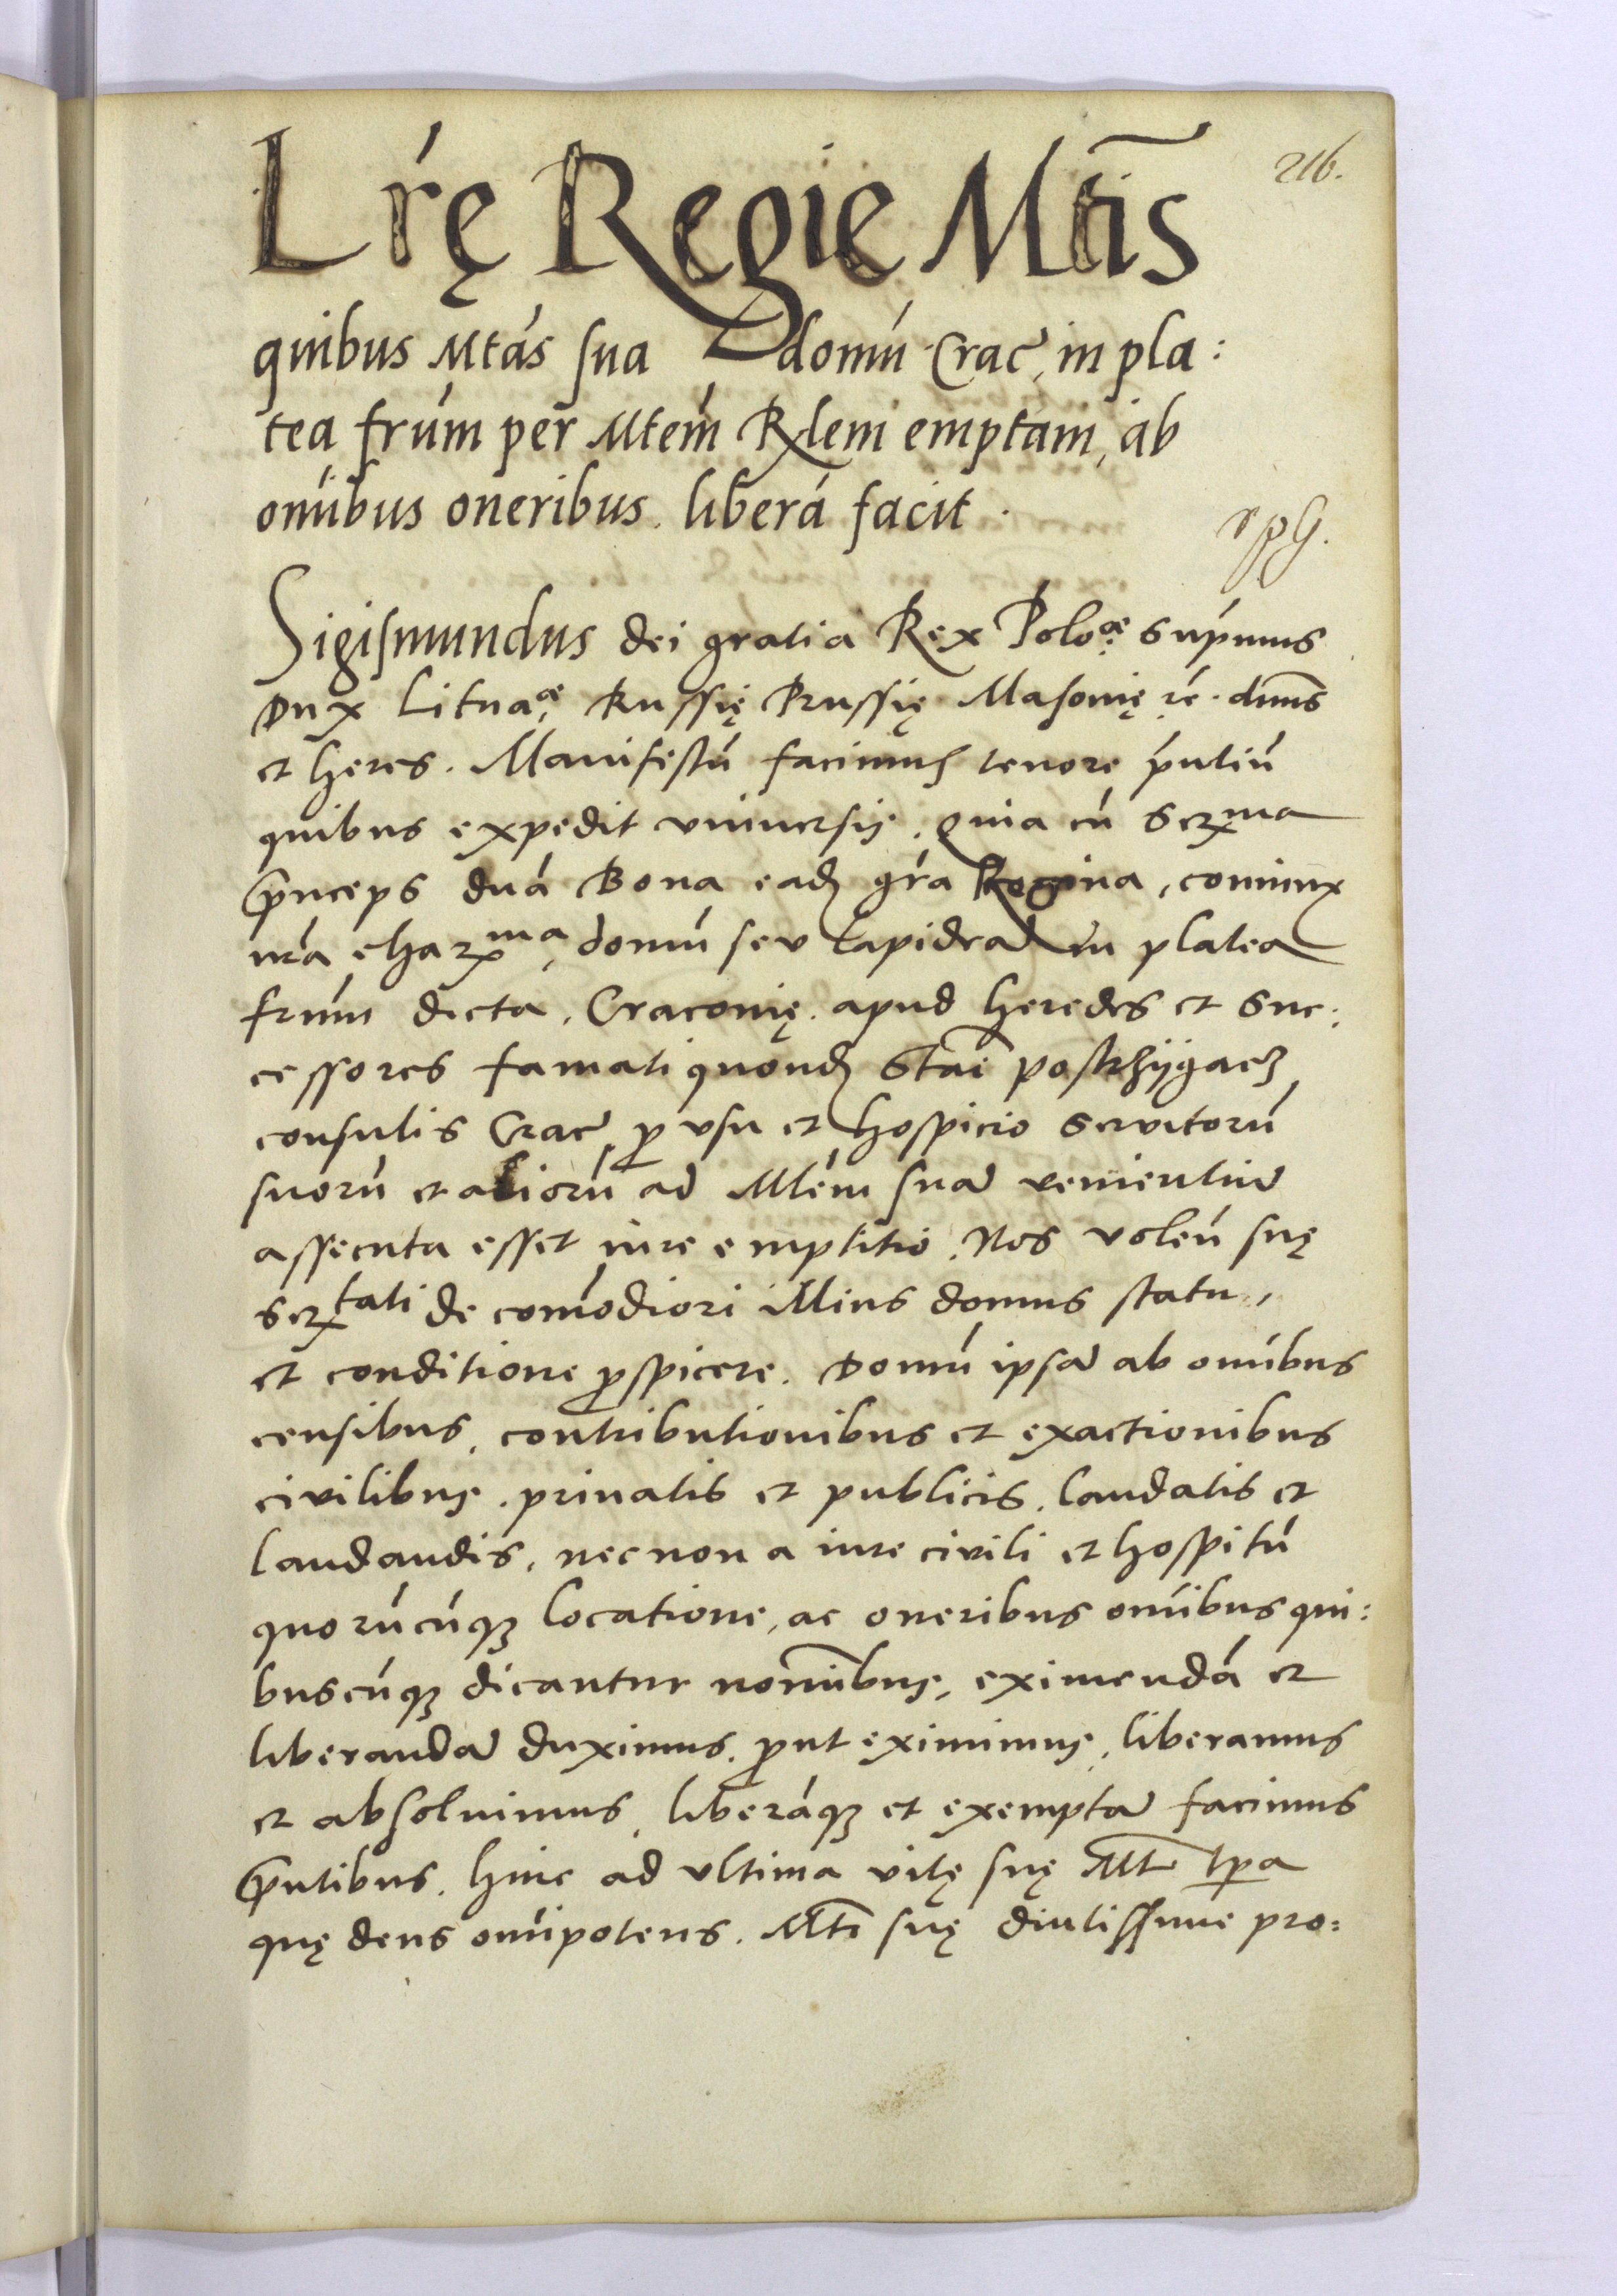 216.
Lrę Regie Mtis
quibus Mtas sua domu Crac, in pla:
tea frum per Mtem Rlem emptam, ab
omibus oneribus. libera facit.
Sigismundus dei gratia Rex Poloæ supmus
Dux Lituaæ, Russię Prussię Masovię rc. dnns
et heres. Manifestu facimus tenore pntiu
quibus expedit universis. Quia cu Serma
princeps dna Bona eadę gra Regina, coniunx
nra charma, domu seu lapidea in platea
frum dicta, Cracovię. apud heredes et suc:
cessores famati quondą Stai postrzygacz
consulis Crac, p usu et hospicio servitoru
suoru et alioru ad Mtem sua venientiu
assecuta esset iure emptitio. Nos volen suę
sertati de comodiori illius domus statu,
et conditione pspicere. Domu ipsa ab omibus
censibus, contributionibus et exactionibus
civilibus. privatis et publicis. laudatis et
laudandis, necnon a iure civili et hospitu
quorucuqz locatione, ac oneribus omibus qui:
buscuqz dicantur nomibus, eximenda et
liberanda duximus. put eximimus, liberamus
et absolvimus, liberaqz et exempta facimus
pntibus. hinc ad ultima vitę suę Mt tpa
quę deus omipotens. Mti suę diutissime pro: